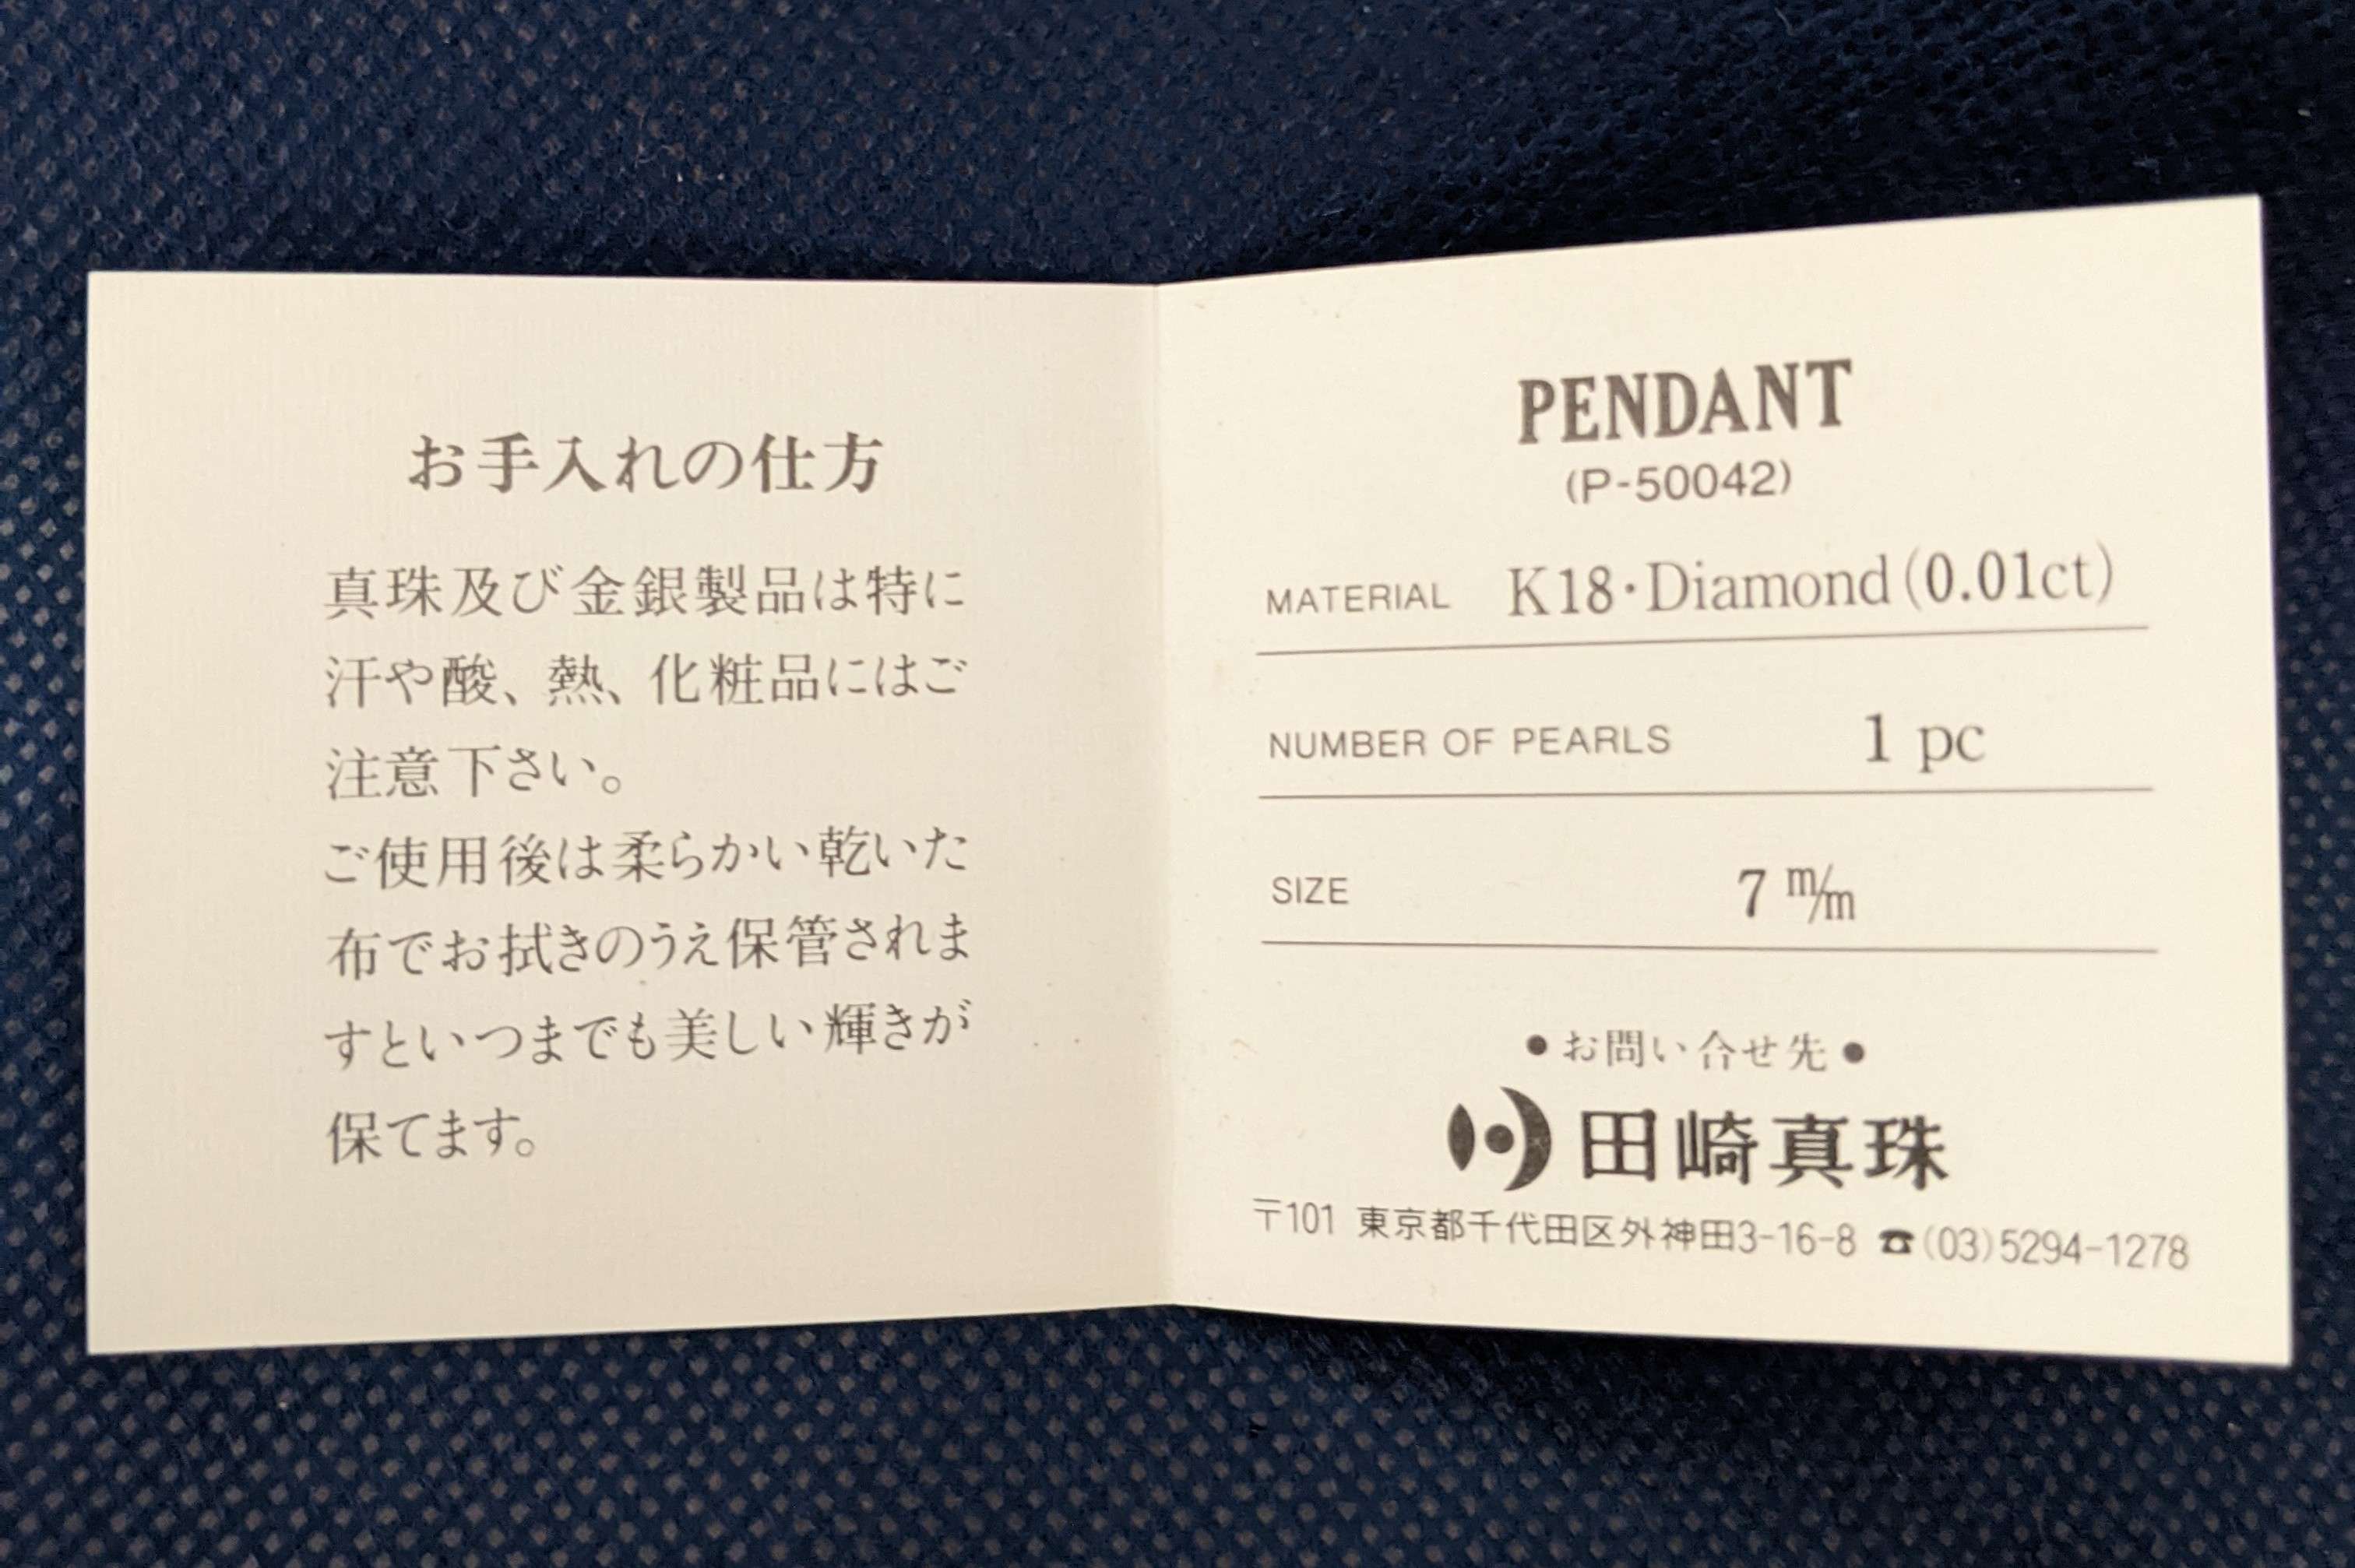 お手入れの仕方
真珠及び金銀製品は特に
汗や酸、熱、化粧品にはご
注意下さい。
ご使用後は柔らかい乾いた
布でお拭きのうえ保管されま
すといつまでも美しい輝きが
保てます。
PENDANT
(P-50042)
MATERIAL K18・Diamond(0.01ct)
NUMBER OF PEARLS 1 pc
SIZE 7 m/m
●お問い合せ先●
田崎真珠
〒101 東京都千代田区外神田3-16-8 ☎(03)5294-1278